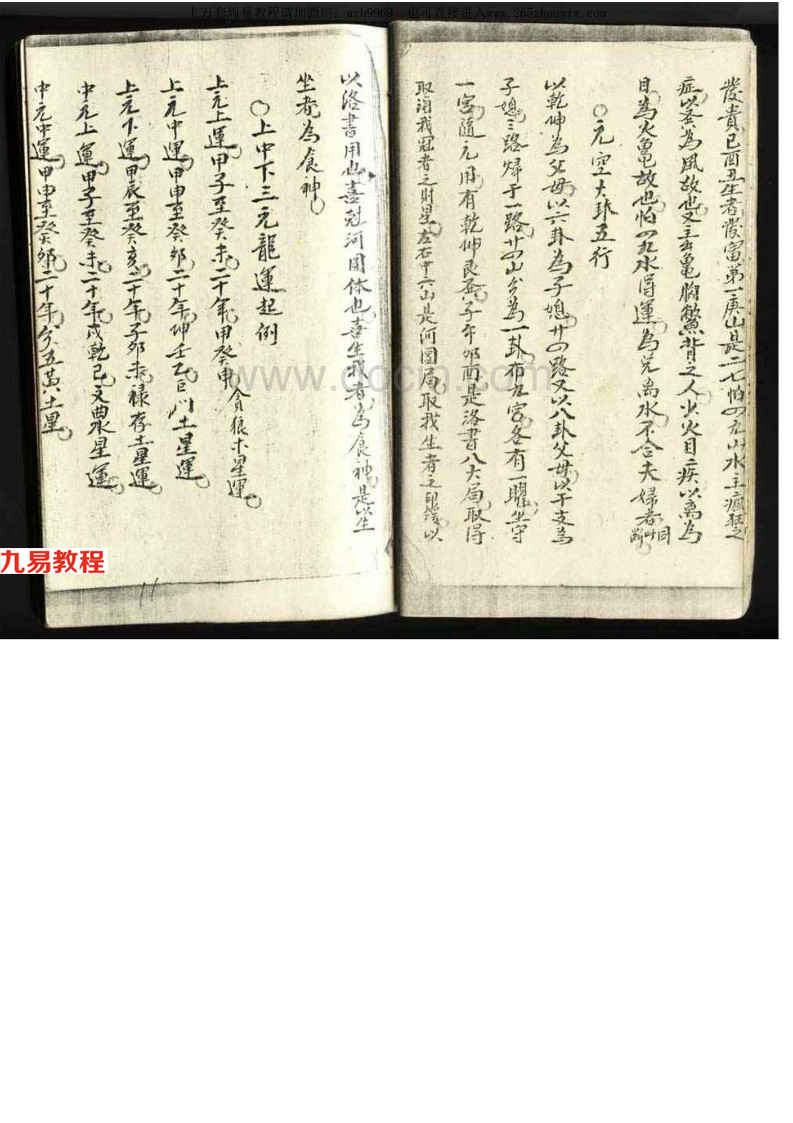 發貴巳酉丑生者發富第一庚山是二七怕四九山水主瘋狂之
症以巽為風故也又主玄龜胸鱉背之人少火目疾以离為
目為火亀故也怕四九水得運為兑离水不合夫婦者同此断
○元空大卦五行
以乾坤為父母以六卦為子媳廿四路又以八卦父母以干支為
子媳三路歸于一路廿四山分為一卦布九宮各有一曜坐守
一宮隨元用有乾坤艮巽子午卯酉是洛書八大局取得
取我冠者之財星左右十六山是河圖局取我生者之以
以洛書用也喜尅河图体也喜生我者為食神是以生
坐者為食神
○上中下三元龍運起例
上元上運甲子至癸未二十年甲癸申貪狼木星運
上元中運甲申至癸卯二十年坤壬乙巨門土星運
上元下運甲辰至癸亥二十年子卯未禄存土星運
中元上運甲子至癸未二十年戌乾巳文曲水星運
中元中運甲申至癸卯二十年分五黄土星
九易教程
11
www.docin.com